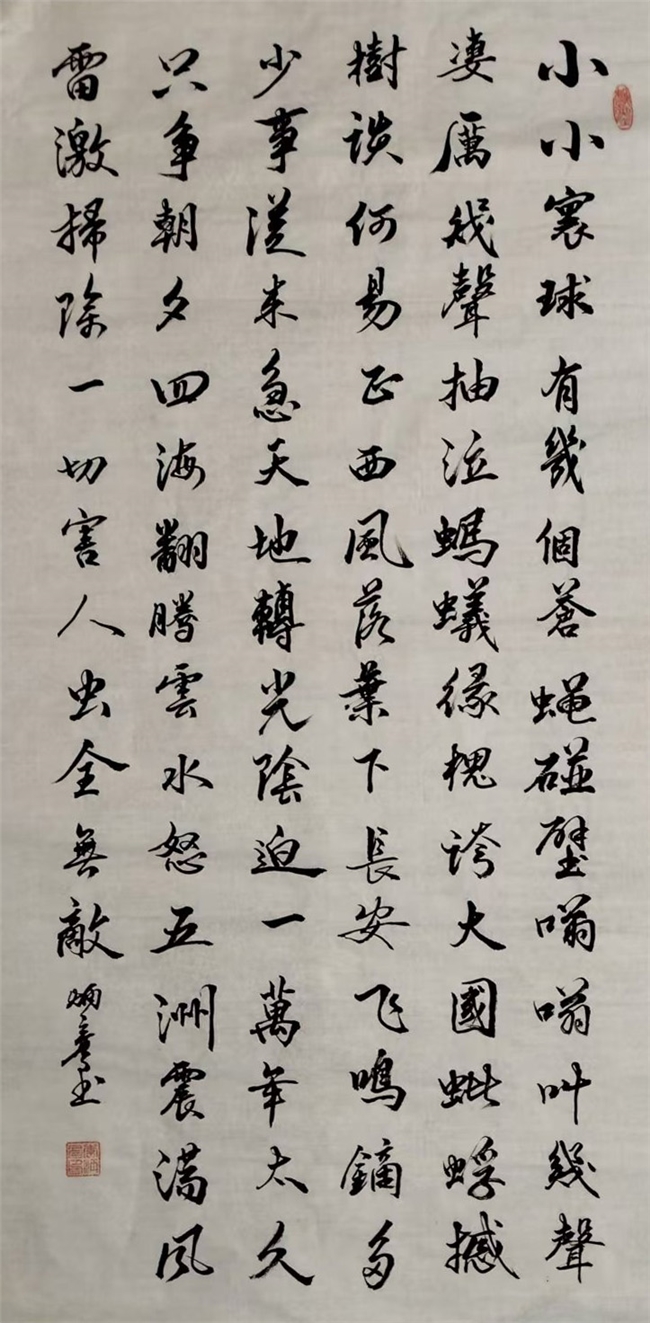 小小寰球有幾個蒼蠅碰壁嗡嗡叫幾聲
凄厲幾聲抽泣螞蟻緣槐誇大國蚍蜉撼
樹談何易正西風落葉下長安飞鳴鏑多
少事從来急天地轉光陰迫一萬年太久
只争朝夕四海翻騰雲水怒五洲震蕩風
雷激掃除一切害人虫全無敵